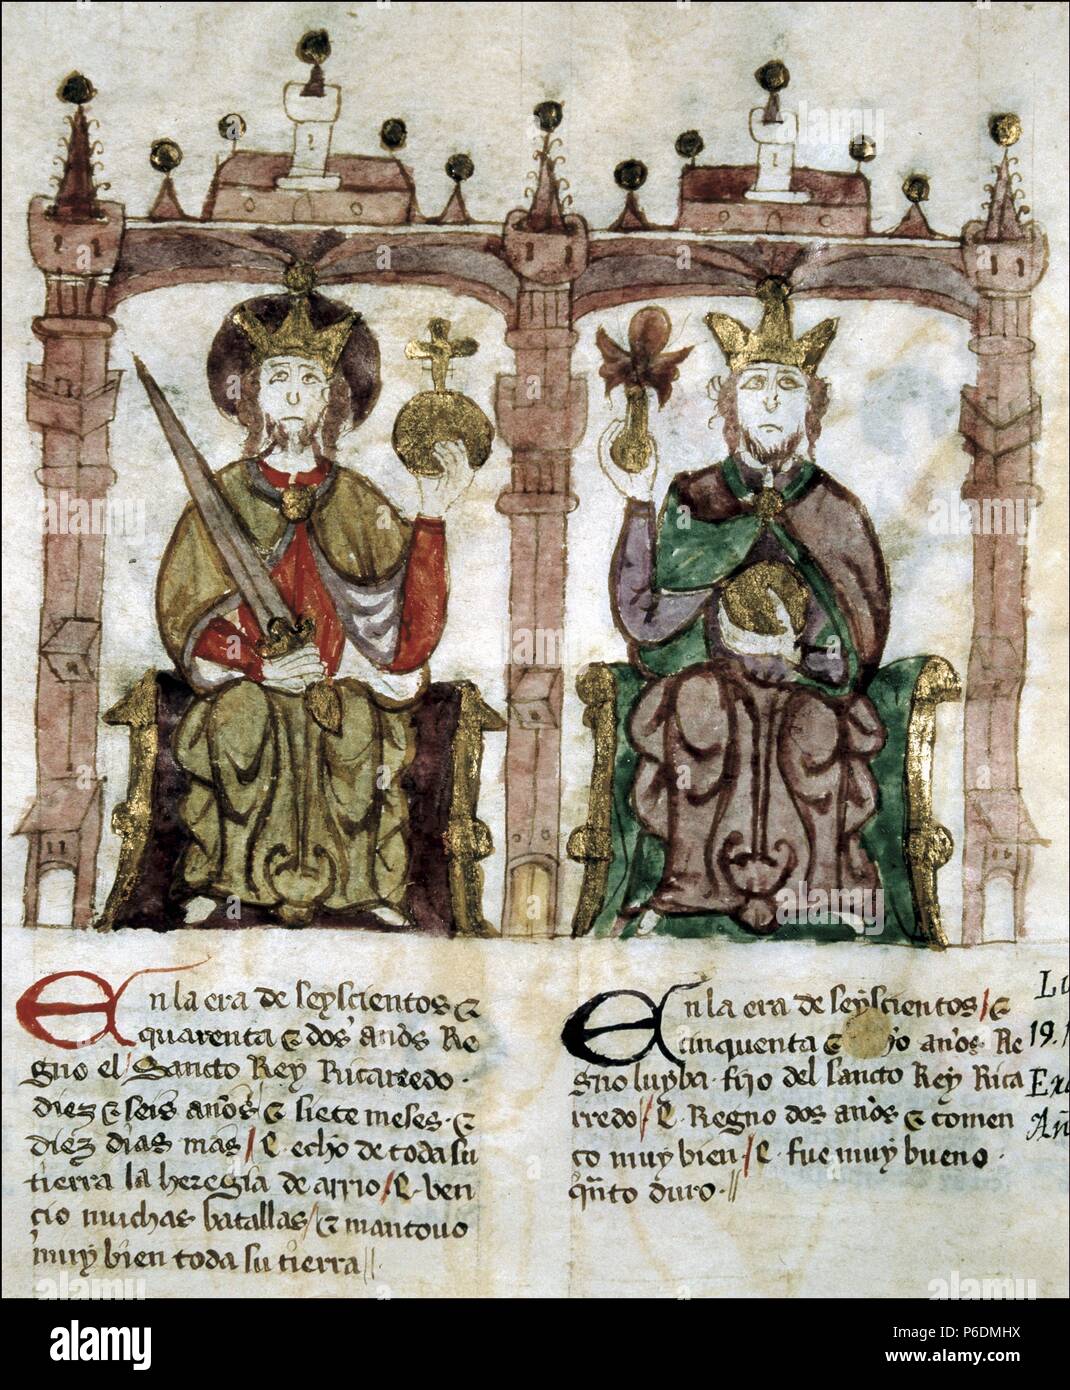 En la era de seyscientos &
quarenta & dos años Re
gno el Sancto Rey Ricarredo
diez & seis años & siete meses &
diez dias mas / E echo de toda su
tierra la heregia de arrio / E ven
çio muchas batallas / & mantouo
muy bien toda su tierra //
En la era de seyscientos / &
cinquenta & años Re
gno luyba fijo del sancto Rey Rica
rredo / E Regno dos años & comen
ço muy bien / E fue muy bueno
qnto duro //
Lu
19.
Exc
Añ
alamy
Image ID: P6DMHX
www.alamy.com